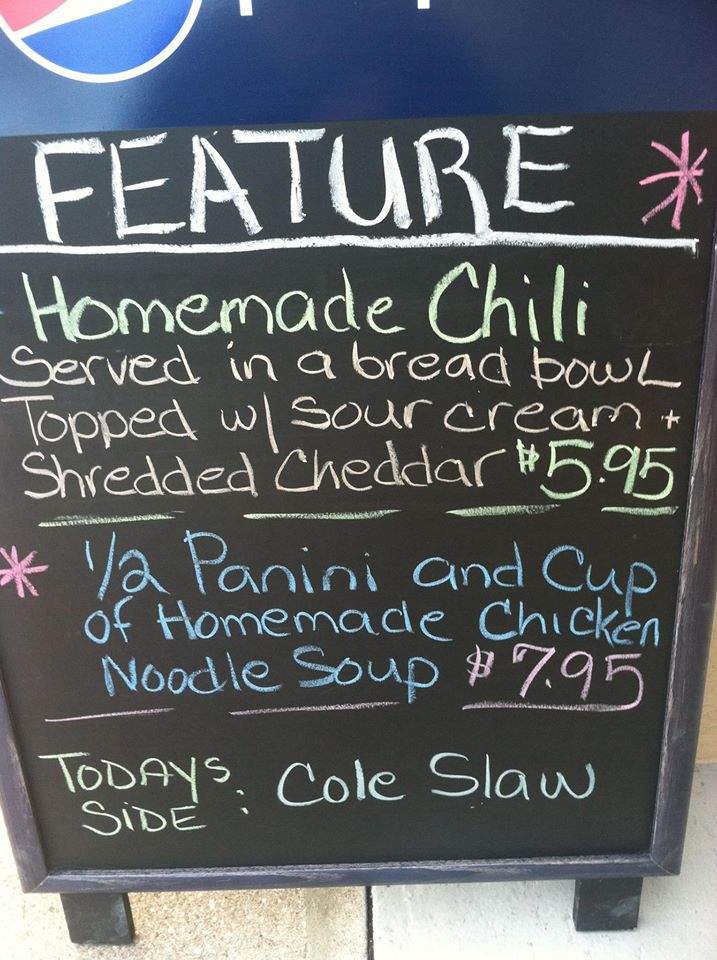 FEATURE *
Homemade Chili
Served in a bread bowl
Topped w/ sour cream +
Shredded Cheddar $5.95
* 1/2 Panini and Cup
of Homemade Chicken
Noodle Soup $7.95
TODAYS
SIDE : Cole Slaw